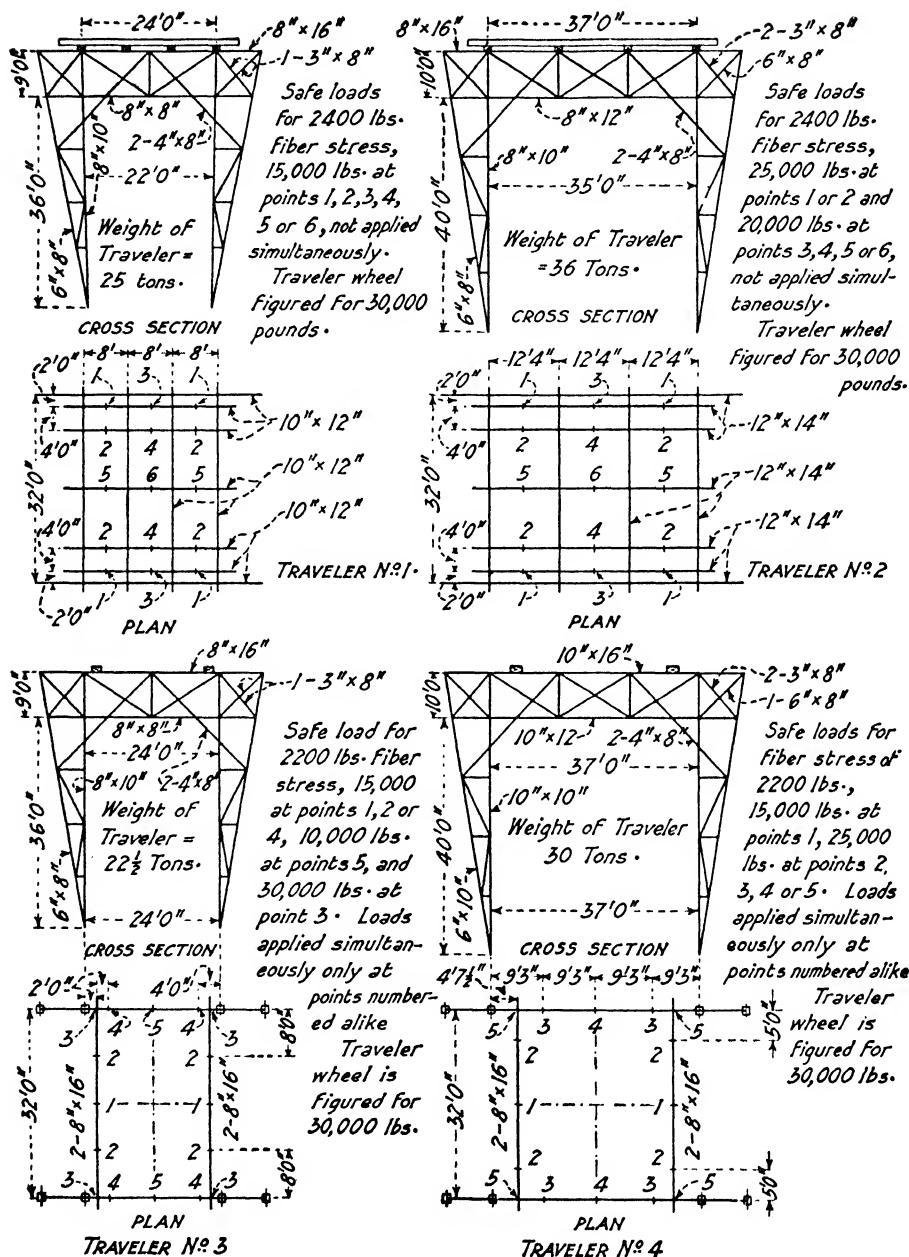 24'0"
8"×16"
1-3"×8"
9'0"
8"×8"
2-4"×8"
8"×10"
22'0"
36'0"
Weight of
Traveler =
25 tons.
6"×8"
CROSS SECTION
Safe loads
for 2400 lbs.
fiber stress,
15,000 lbs. at
points 1, 2, 3, 4,
5 or 6, not applied
simultaneously.
Traveler wheel
figured for 30,000
pounds.
8' 8' 8'
2'0" 1 3 1
10"×12"
4'0" 2 4 2
5 6 5
10"×12"
32'0"
10"×12"
4'0" 2 4 2
1 3 1
2'0"
PLAN
TRAVELER Nº 1.
37'0"
8"×16"
2-3"×8"
6"×8"
10'0"
8"×12"
8"×10"
2-4"×8"
35'0"
40'0"
Weight of Traveler
= 36 Tons.
6"×8"
CROSS SECTION
Safe loads
for 2400 lbs.
fiber stress,
25,000 lbs. at
points 1 or 2 and
20,000 lbs. at
points 3, 4, 5 or 6,
not applied simul-
taneously.
Traveler wheel
figured for 30,000
pounds.
12'4" 12'4" 12'4"
2'0" 1 3 1
12"×14"
4'0" 2 4 2
5 6 5
12"×14"
32'0"
12"×14"
4'0" 2 4 2
1 3 1
2'0"
PLAN
TRAVELER Nº 2
8"×16"
1-3"×8"
9'0"
8"×8"
24'0"
8"×10" 2-4"×8"
36'0"
Weight of
Traveler =
22½ Tons.
6"×8"
24'0"
CROSS SECTION
Safe load for
2200 lbs. fiber
stress, 15,000
at points 1, 2 or
4, 10,000 lbs.
at points 5, and
30,000 lbs. at
point 3. Loads
applied simultan-
eously only at
points number-
ed alike
Traveler
wheel is
figured for
30,000 lbs.
2'0" 4'0"
3 4 5 4 3
8'0"
2 2
32'0"
2-8"×16" 1 1 2-8"×16"
2 2
8'0"
3 4 5 4 3
PLAN
TRAVELER Nº 3
10"×16"
2-3"×8"
1-6"×8"
10'0"
10"×12 2-4"×8"
37'0"
10"×10"
40'0"
Weight of Traveler
30 Tons.
6"×10"
37'0"
CROSS SECTION
Safe loads for
fiber stress of
2200 lbs.,
15,000 lbs. at
points 1, 25,000
lbs. at points 2,
3, 4 or 5. Loads
applied simultan-
eously only at
points numbered alike
Traveler
wheel is
figured for
30,000 lbs.
4'7½" 9'3" 9'3" 9'3" 9'3"
5 3 4 3 5
5'0"
2 2
32'0"
2-8"×16" 1 1 2-8"×16"
2 2
5'0"
5 3 4 3 5
PLAN
TRAVELER Nº 4